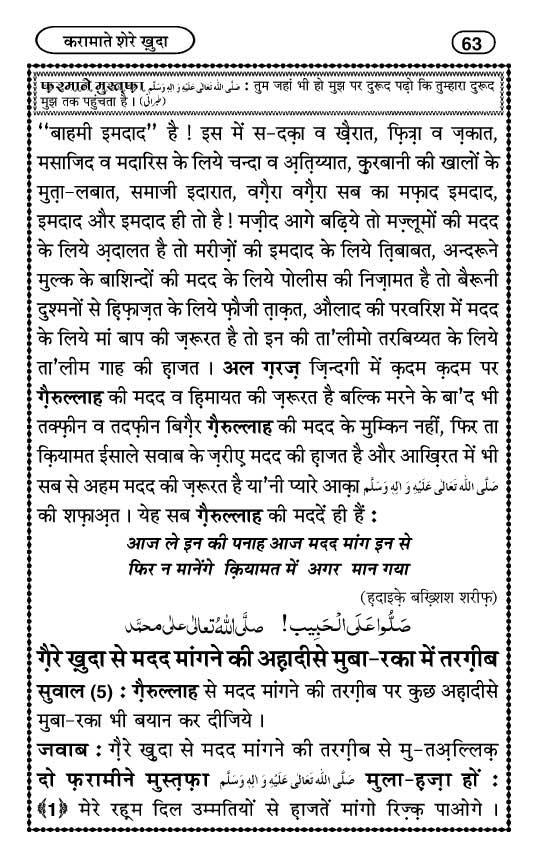 करामाते शेरे ख़ुदा
63
फ़रमाने मुस्तफ़ा صَلَّى اللّٰهُ تَعَالٰى عَلَيْهِ وَاٰلِهٖ وَسَلَّم : तुम जहां भी हो मुझ पर दुरूद पढ़ो कि तुम्हारा दुरूद
मुझ तक पहुंचता है । (طبرانی)
“बाहमी इमदाद” है ! इस में स-दक़ा व ख़ैरात, फ़ित्रा व ज़कात,
मसाजिद व मदारिस के लिये चन्दा व अ़तिय्यात, क़ुरबानी की खालों के
मुत़ा-लबात, समाजी इदारात, वग़ैरा वग़ैरा सब का मफ़ाद इमदाद,
इमदाद और इमदाद ही तो है ! मज़ीद आगे बढ़िये तो मज़्लूमों की मदद
के लिये अ़दालत है तो मरीज़ों की इमदाद के लिये त़िबाबत, अन्दरूने
मुल्क के बाशिन्दों की मदद के लिये पोलीस की निज़ामत है तो बैरूनी
दुश्मनों से हि़फ़ाज़त के लिये फ़ौजी त़ाक़त, औलाद की परवरिश में मदद
के लिये मां बाप की ज़रूरत है तो इन की ता'लीमो तरबिय्यत के लिये
ता'लीम गाह की ह़ाजत । अल ग़रज़ ज़िन्दगी में क़दम क़दम पर
ग़ैरुल्लाह की मदद व हि़मायत की ज़रूरत है बल्कि मरने के बा'द भी
तक्फ़ीन व तदफ़ीन बिग़ैर ग़ैरुल्लाह की मदद के मुम्किन नहीं, फिर ता
क़ियामत ईसाले सवाब के ज़रीए मदद की ह़ाजत है और आख़िरत में भी
सब से अहम मदद की ज़रूरत है या'नी प्यारे आक़ा صَلَّى اللّٰهُ تَعَالٰى عَلَيْهِ وَاٰلِهٖ وَسَلَّم
की शफ़ाअ़त । येह सब ग़ैरुल्लाह की मददें ही हैं :
आज ले इन की पनाह आज मदद मांग इन से
फिर न मानेंगे क़ियामत में अगर मान गया
(ह़दाइके़ बख़्शिश शरीफ़)
صَلُّوا عَلَى الْحَبِيب! صَلَّى اللّٰهُ تَعَالٰى عَلٰى مُحَمَّد
ग़ैरे ख़ुदा से मदद मांगने की अह़ादीसे मुबा-रका में तरग़ीब
सुवाल (5) : ग़ैरुल्लाह से मदद मांगने की तरग़ीब पर कुछ अह़ादीसे
मुबा-रका भी बयान कर दीजिये ।
जवाब : ग़ैरे ख़ुदा से मदद मांगने की तरग़ीब से मु-तअ़ल्लिक़
दो फ़रामीने मुस्त़फ़ा صَلَّى اللّٰهُ تَعَالٰى عَلَيْهِ وَاٰلِهٖ وَسَلَّم मुला-ह़ज़ा हों :
﴾1﴿ मेरे रह़्म दिल उम्मतियों से ह़ाजतें मांगो रिज़्क़ पाओगे ।